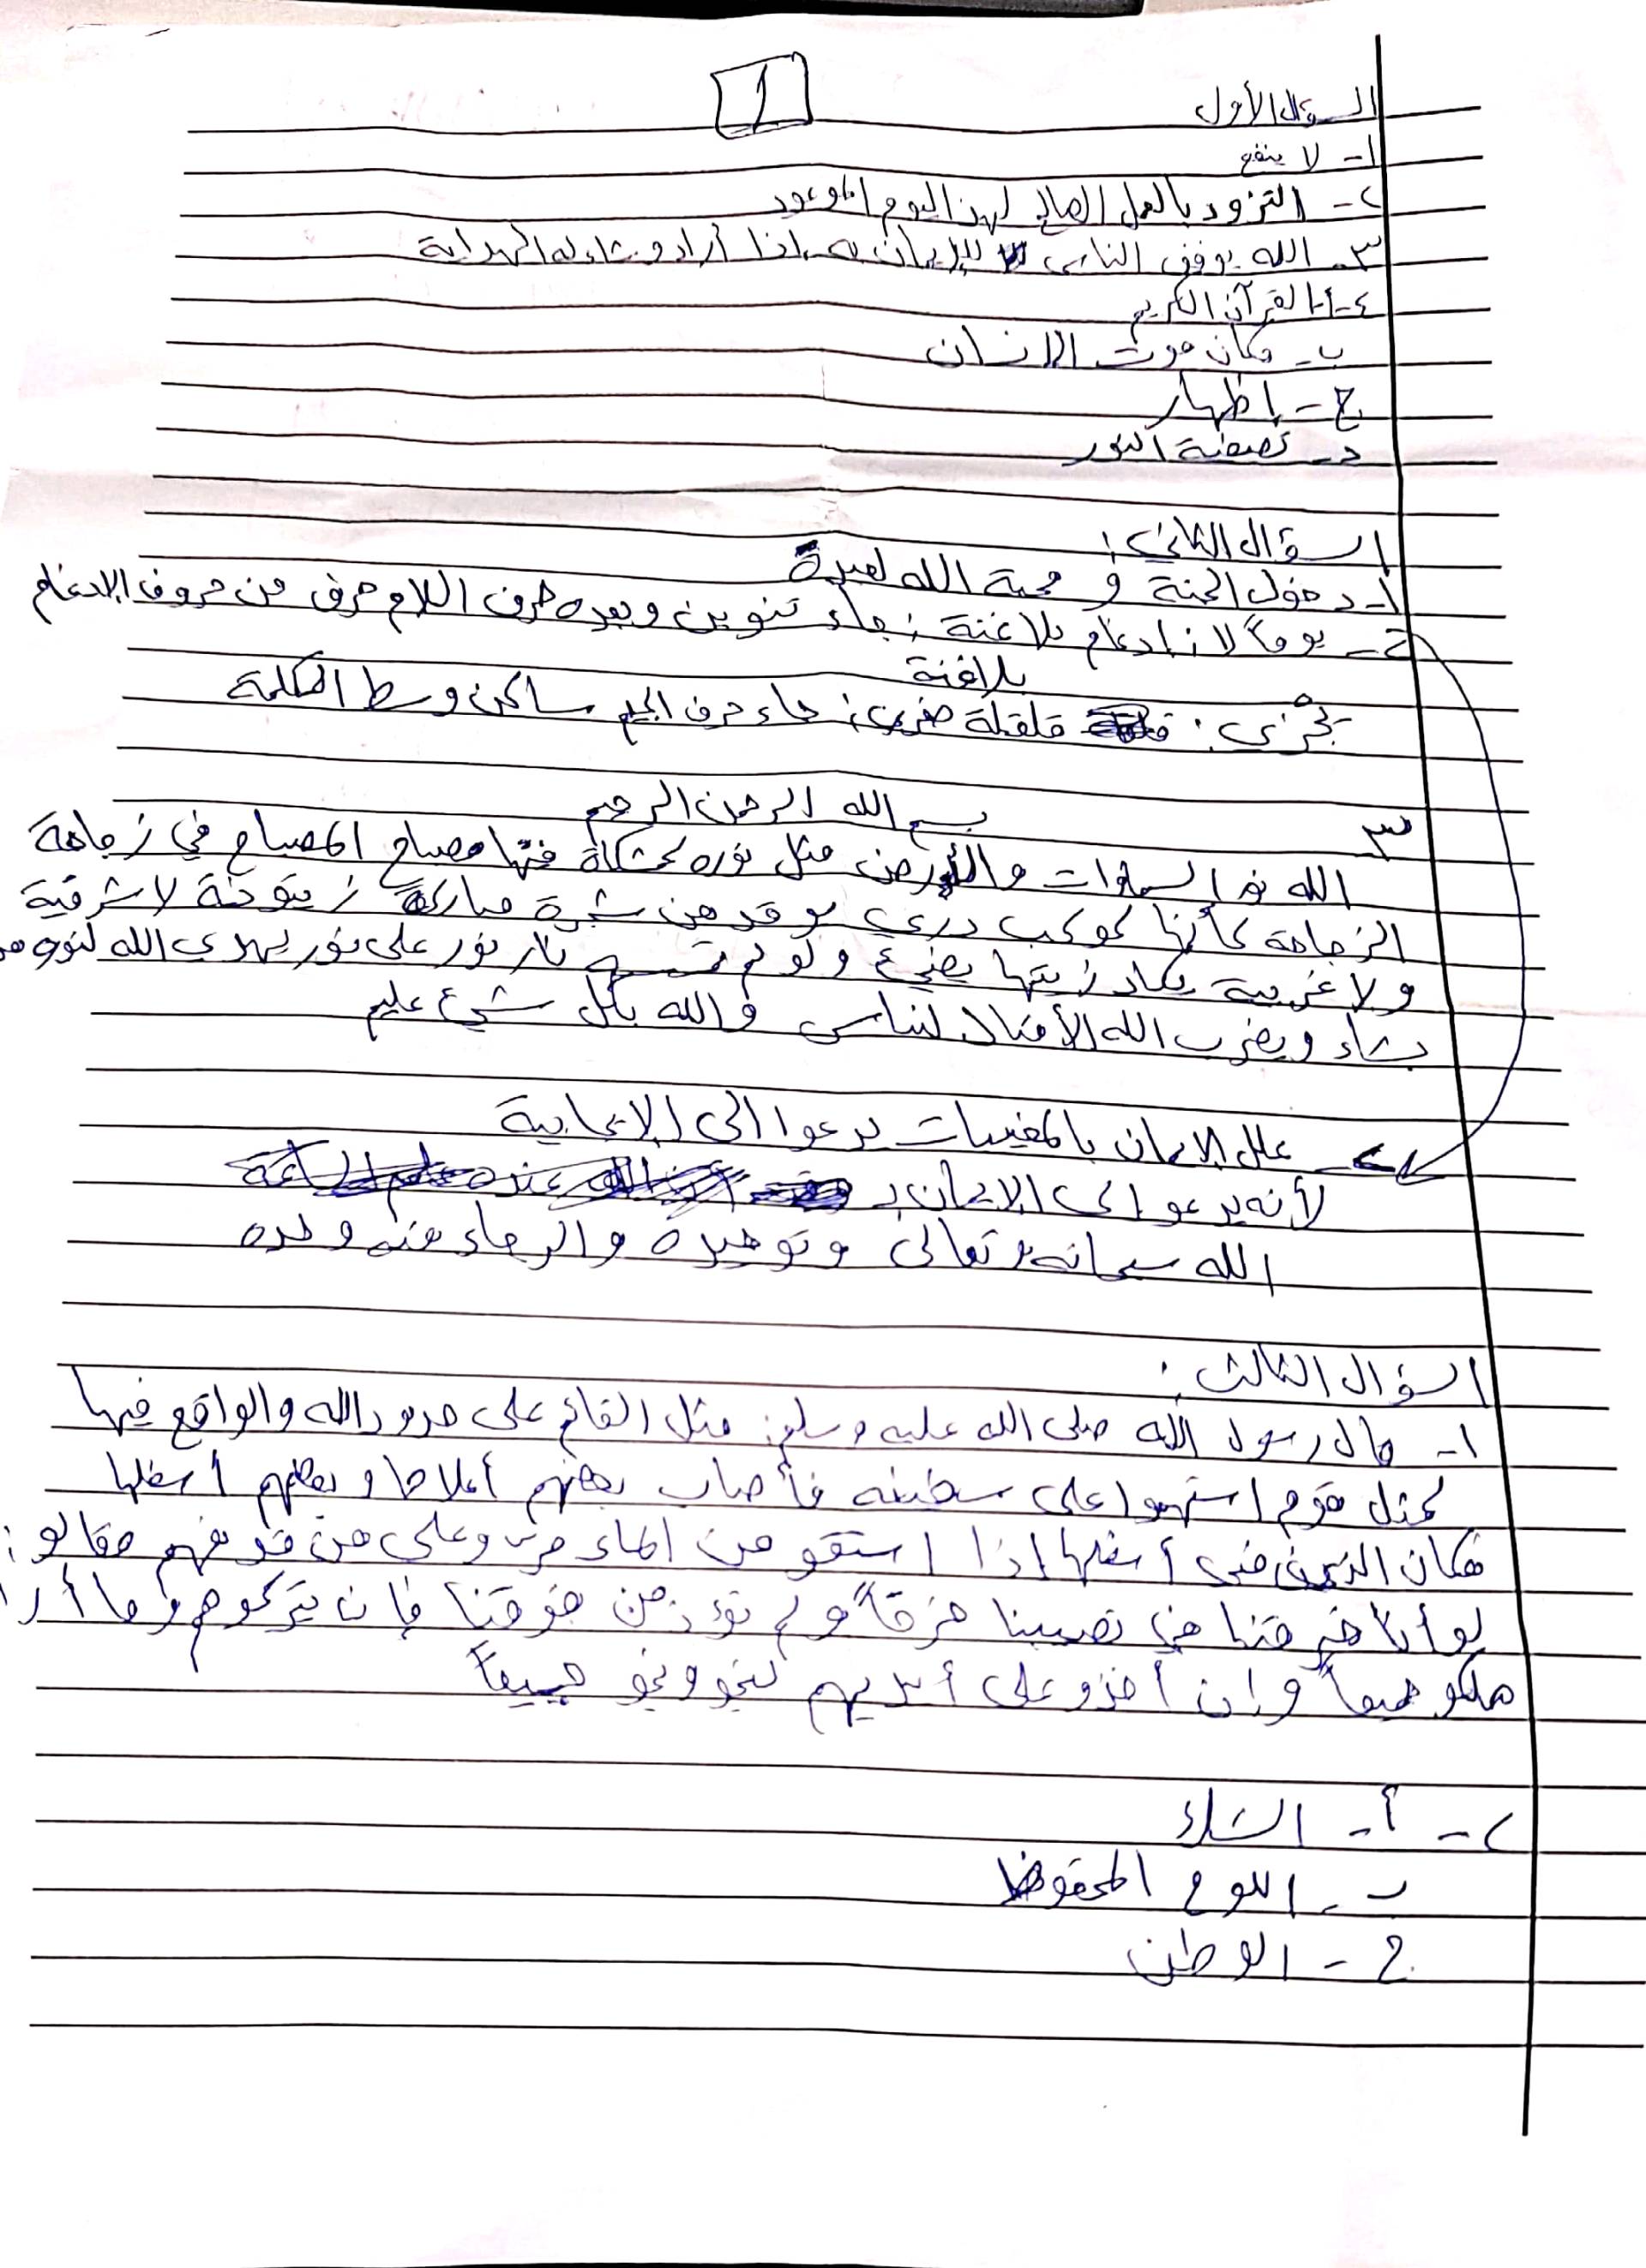 1
السؤال الأول
١- لا ينفع
٢- التزود بالعمل الصالح لهذا اليوم الموعود
٣- الله يوفق الناس للإيمان به إذا أراد وشاء له الهداية
٤- أ- القرآن الكريم
ب- مكان موت الإنسان
ج- إظهار
د- تصفية النور
السؤال الثاني:
١- دخول الجنة و محبة الله لعبده
٢- يوماً لا: إدغام بلا غنة: جاء تنوين وبعده حرف اللام حرف من حروف الإدغام
بلا غنة
تجزى: قلقلة صغرى: جاء حرف الجيم ساكن وسط الكلمة
٣ بسم الله الرحمن الرحيم
الله نور السماوات والأرض مثل نوره كمشكاة فيها مصباح المصباح في زجاجة
الزجاجة كأنها كوكب دري يوقد من شجرة مباركة زيتونة لا شرقية
ولا غربية يكاد زيتها يضيء ولو لم تمسسه نار نور على نور يهدي الله لنوره من
يشاء ويضرب الله الأمثال لناس والله بكل شيء عليم
علل الإيمان بالمغيبات يدعوا الى الإيجابية
لأنه يدعو إلى الإيمان بـ
الله سبحانه وتعالى وتوحيده والرجاء منه وحده
السؤال الثالث:
١- قال رسول الله صلى الله عليه وسلم: مثل القائم على حدود الله والواقع فيها
كمثل قوم استهموا على سفينه فأصاب بعضهم أعلاها وبعضهم أسفلها
فكان الذين في أسفلها إذا استقو من الماء مرو على من فوقهم فقالو:
لو أنا خرقنا في نصيبنا خرقاً ولم نؤذ من فوقنا فإن يتركوهم وما أرا
هلكو جميعاً وإن أخذو على أيديهم نجو ونجو جميعاً
٢- أ- الشراء
ب- اللوح المحفوظ
ج- الوطن